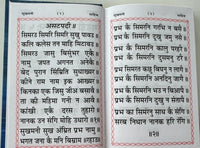 असटपदी ॥
सिमरउ सिमरि सिमरि सुखु पावउ ॥
कलि कलेस तन माहि मिटावउ ॥
सिमरउ जासु बिसुंभर एकै ॥
नामु जपत अगनत अनेकै ॥
बेद पुरान सिंम्रिति सुधाख्यर ॥
कीने राम नाम इक आख्यर ॥
किनका एक जिसु जीअ बसावै ॥
ता की महिमा गनी न आवै ॥
कांखी एकै दरस तुहारो ॥
नानक उन संगि मोहि उधारो ॥१॥
सुखमनी सुख अंम्रित प्रभ नामु ॥
भगत जना कै मनि बिस्राम ॥रहाउ॥
प्रभ कै सिमरनि गरभि न बसै ॥
प्रभ कै सिमरनि दूखु जमु नसै ॥
प्रभ कै सिमरनि कालु परहरै ॥
प्रभ कै सिमरनि दुसमनु टरै ॥
प्रभ सिमरत कछु बिघनु न लागै ॥
प्रभ कै सिमरनि अनदिनु जागै ॥
प्रभ कै सिमरनि भउ न बिआपै ॥
प्रभ कै सिमरनि दुखु न संतापै ॥
प्रभ का सिमरनु साध कै संगि ॥
सरब निधान नानक हरि रंगि ॥
॥२॥